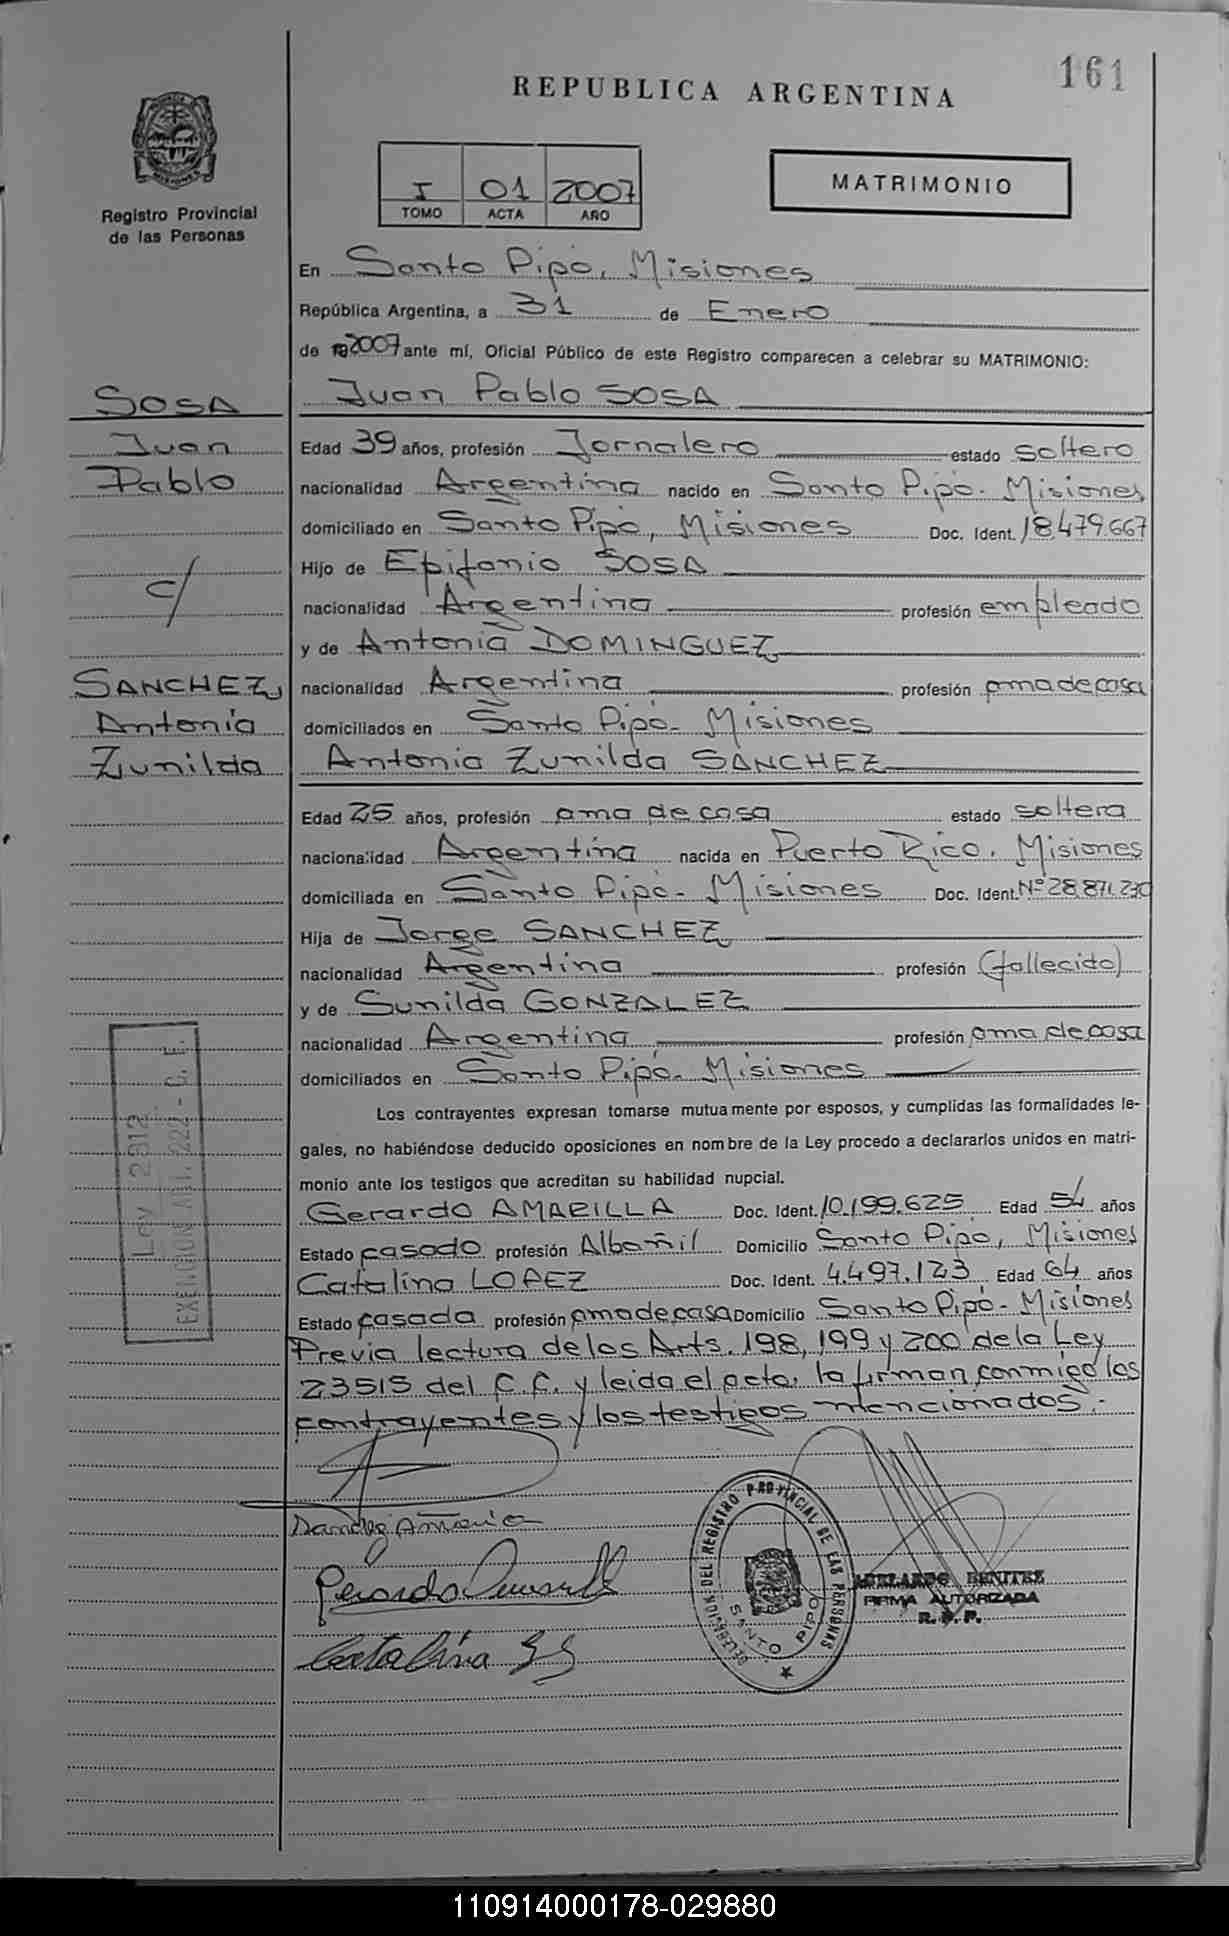 161
REPUBLICA ARGENTINA
Registro Provincial
de las Personas
I 01 2007
TOMO ACTA AÑO
MATRIMONIO
En Santo Pipó, Misiones
República Argentina, a 31 de Enero
de 2007 ante mí, Oficial Público de este Registro comparecen a celebrar su MATRIMONIO:
SOSA
Juan
Pablo
c/
SANCHEZ
Antonia
Zunilda
Juan Pablo SOSA
Edad 39 años, profesión Jornalero estado soltero
nacionalidad Argentina nacido en Santo Pipó - Misiones
domiciliado en Santo Pipó, Misiones Doc. Ident. 18.479.667
Hijo de Epifanio SOSA
nacionalidad Argentina profesión empleado
y de Antonia DOMINGUEZ
nacionalidad Argentina profesión ama de casa
domiciliados en Santo Pipó - Misiones
Antonia Zunilda SANCHEZ
Edad 25 años, profesión ama de casa estado soltera
nacionalidad Argentina nacida en Puerto Rico. Misiones
domiciliada en Santo Pipó - Misiones Doc. Ident. Nº 28.871.230
Hija de Jorge SANCHEZ
nacionalidad Argentina profesión (fallecido)
y de Sunilda GONZALEZ
nacionalidad Argentina profesión ama de casa
domiciliados en Santo Pipó. Misiones
Los contrayentes expresan tomarse mutuamente por esposos, y cumplidas las formalidades le-
gales, no habiéndose deducido oposiciones en nombre de la Ley procedo a declararlos unidos en matri-
monio ante los testigos que acreditan su habilidad nupcial.
Gerardo AMARILLA Doc. Ident. 10.199.625 Edad 54 años
Estado casado profesión Albañil Domicilio Santo Pipó, Misiones
Catalina LOPEZ Doc. Ident. 4.497.123 Edad 64 años
Estado casada profesión ama de casa Domicilio Santo Pipó - Misiones
Previa lectura de los Arts. 198, 199 y 200 de la Ley
23515 del C.C. y leida el acta, la firman conmigo los
contrayentes y los testigos mencionados.-
Ley 2912
EXENCION ART. 222 - C. F.
Antonia
Gerardo
Catalina
DELEGACION DEL REGISTRO PROVINCIAL DE LAS PERSONAS
SANTO PIPO
ADELARDO BENITEZ
FIRMA AUTORIZADA
R. P. P.
110914000178-029880